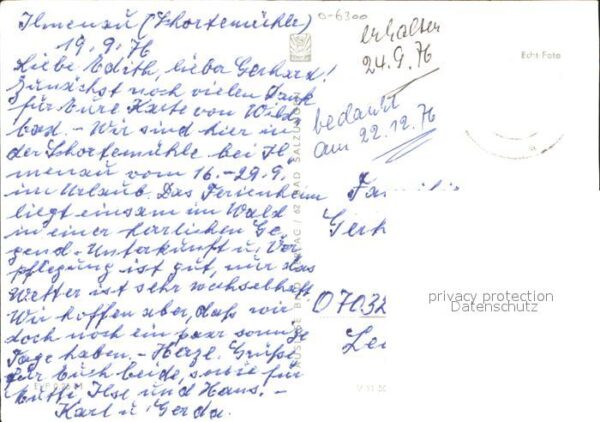 Ilmenau (Schortemühle)
19.9.76
Liebe Edith, lieber Gerhard!
Zunächst noch vielen Dank
für Eure Karte von Wild-
bad. - Wir sind hier in
der Schortemühle bei Il-
menau vom 16.-29.9.
im Urlaub. Das Ferienheim
liegt einsam im Wald
in einer herrlichen Ge-
gend. Unterkunft u. Ver-
pflegung ist gut, nur das
Wetter ist sehr wechselhaft
Wir hoffen aber, daß wir
doch noch ein paar sonnige
Tage haben. - Herzl. Grüße
für Euch beide, sowie für
Mutti, Ilse und Hans. -
Karl u. Gerda.
O-6300
erhalten
24.9.76
bedankt
am 22.12.76
Echt Foto
BAD SALZUNGEN
Gerh
07032
Lei
privacy protection
Datenschutz